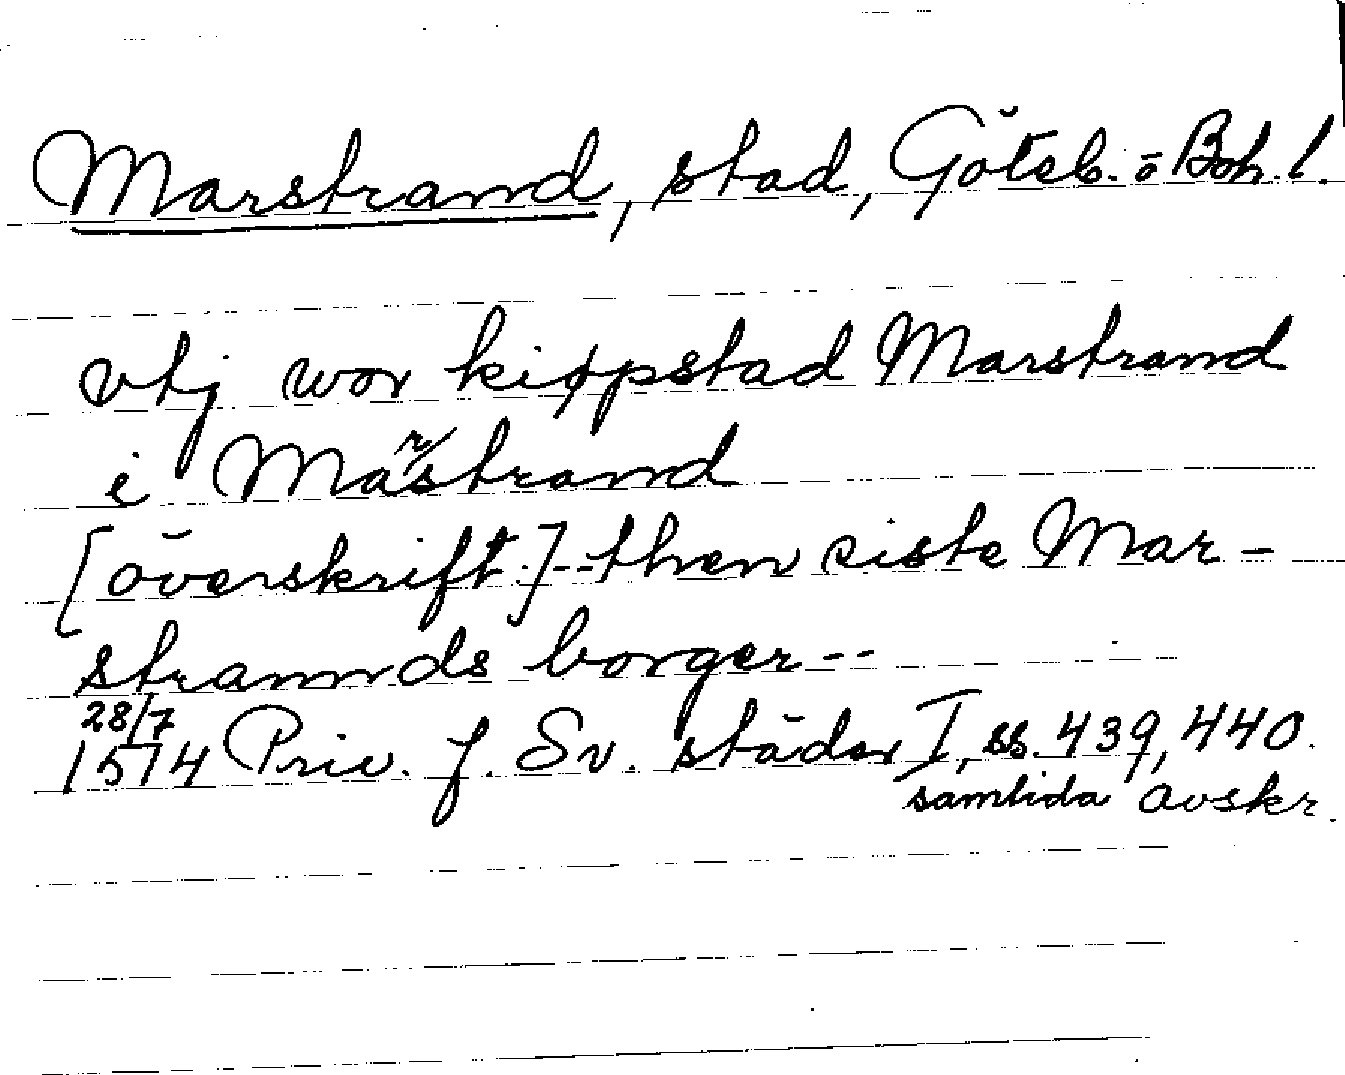 Marstrand, stad, Göteb. o Boh. l.
vtj wor kiøpstad Marstrand
i Marstrand
[överskrift] -- then siste Mar-
strannds borger --
28/7
1574 Priv. f. Sv. städer I, ss. 439, 440.
samtida avskr.